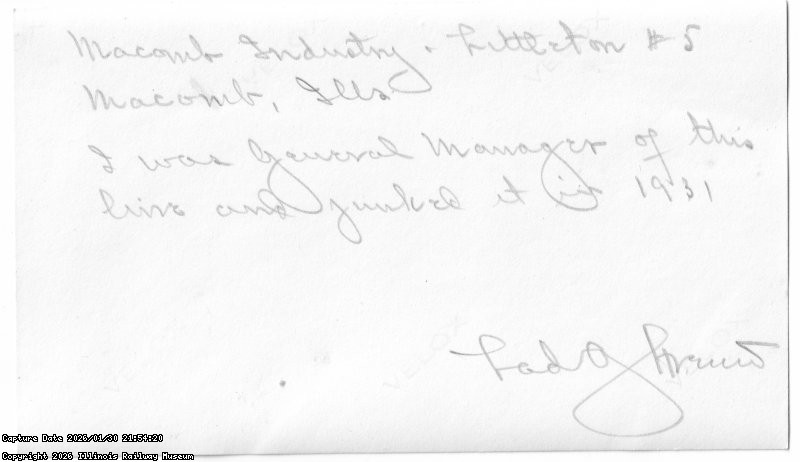 Macomb Industry & Littleton # 5
Macomb, Ills
I was General Manager of this
line and junked it in 1931
Capture Date 2026/01/30 21:54:20
Copyright 2026 Illinois Railway Museum